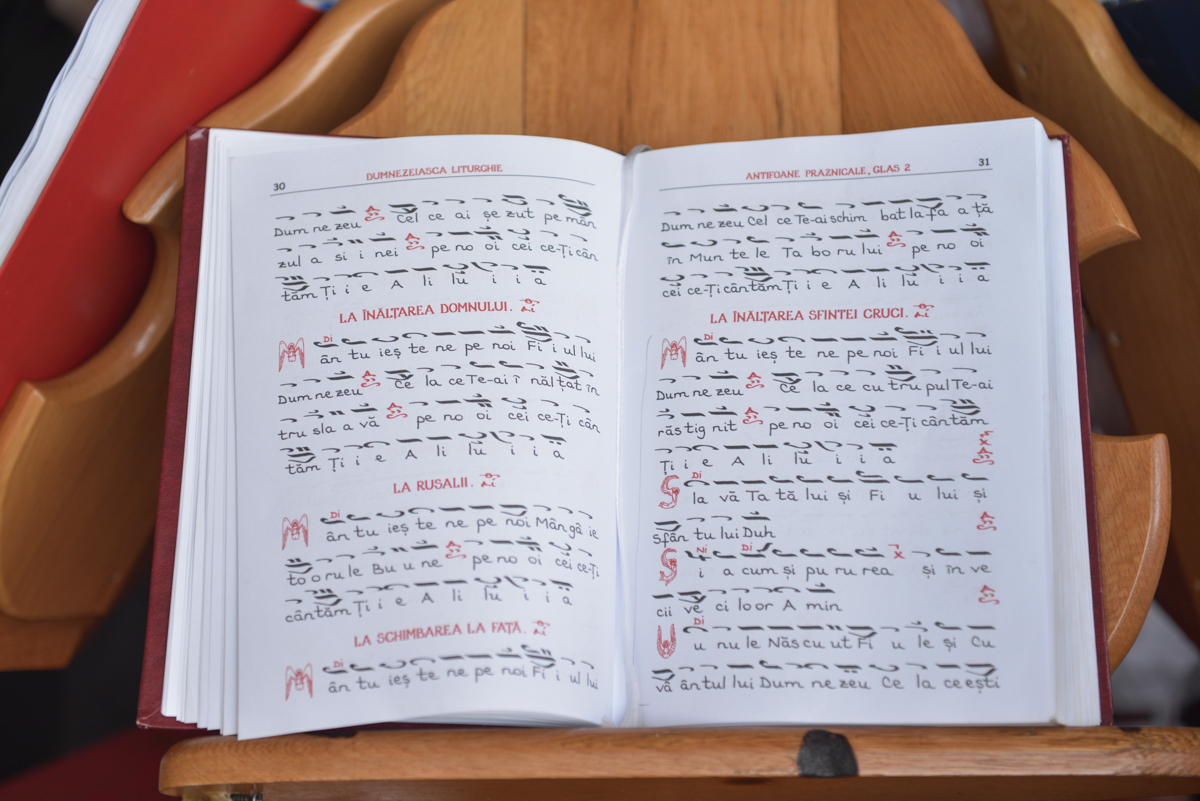 30
DUMNEZEIASCA LITURGHIE
Dum ne zeu Cel ce ai şe zut pe mân
zul a si i nei pe no oi cei ce-Ţi cân
tăm Ţi i e A li lu i i a
LA ÎNĂLŢAREA DOMNULUI.
Di
Mân tu ieş te ne pe noi Fi i ul lui
Dum ne zeu Ce la ce Te-ai î năl ţat în
tru sla a vă pe no oi cei ce-Ţi cân
tăm Ţi i e A li lu i i a
LA RUSALII.
Di
Mân tu ieş te ne pe noi Mân gâ ie
to o ru le Bu u ne pe no oi cei ce-Ţi
cân tăm Ţi i e A li lu i i a
LA SCHIMBAREA LA FAŢĂ.
Di
Mân tu ieş te ne pe noi Fi i ul lui
ANTIFOANE PRAZNICALE, GLAS 2
31
Dum ne zeu Cel ce Te-ai schim bat la fa a ţă
în Mun te le Ta bo ru lui pe no oi
cei ce-Ţi cân tăm Ţi i e A li lu i i a
LA ÎNĂLŢAREA SFINTEI CRUCI.
Di
Mân tu ieş te ne pe noi Fi i ul lui
Dum ne zeu Ce la ce cu tru pul Te-ai
răs tig nit pe no oi cei ce-Ţi cân tăm
Ţi i e A li lu i i a
Di
Sla vă Ta tă lui şi Fi u lui şi
Sfân tu lui Duh
Ni Di
Şi a cum şi pu ru rea şi în ve
cii ve ci lo or A min
Di
U nu le Năs cu ut Fi u le şi Cu
vâ ân tul lui Dum ne zeu Ce la ce eşti